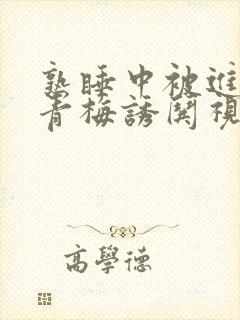 熟睡中被進
青梅誘関視
高學德